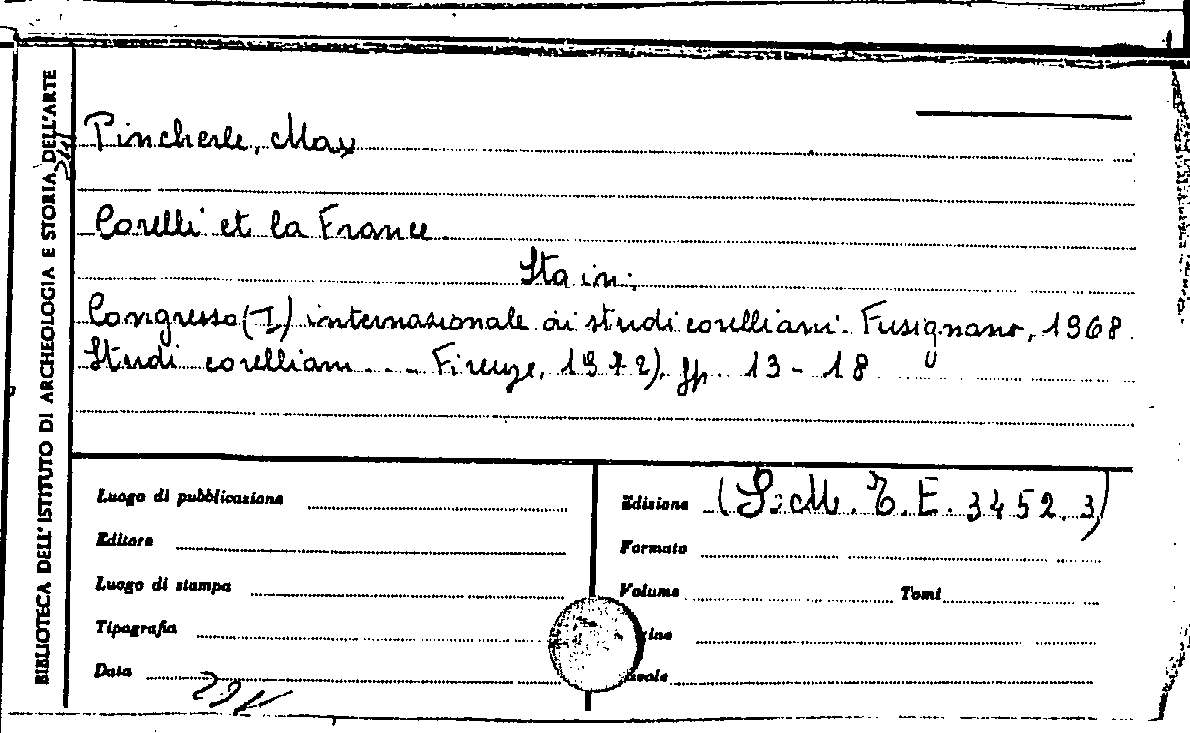 BIBLIOTECA DELL'ISTITUTO DI ARCHEOLOGIA E STORIA DELL'ARTE
Pincherle, Max
Corelli et la France.
Sta in:
Congresso (I) internazionale di studi corelliani. Fusignano, 1968.
Studi corelliani ... Firenze, 1972), pp. 13-18
Luogo di pubblicazione
Editore
Luogo di stampa
Tipografia
Data
Edizione (S.M. E. 3452.3)
Formato
Volume Tomi
gine
avole